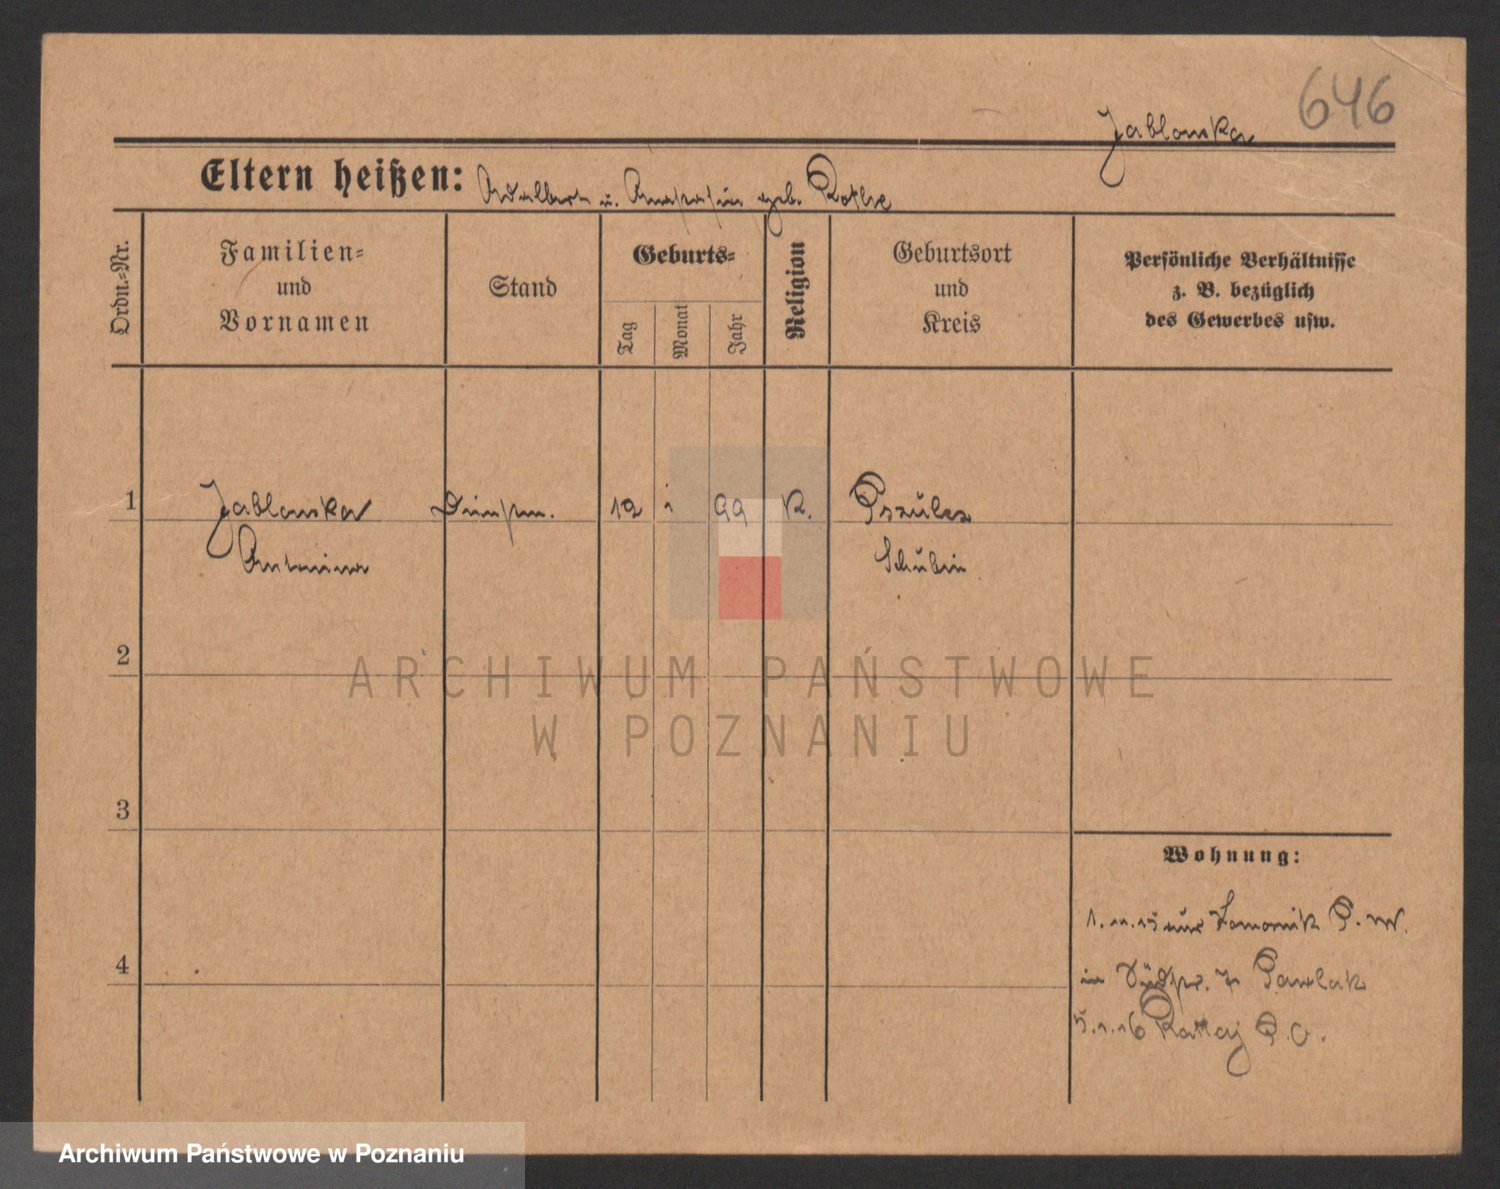 646
Jablonska
Eltern heißen: Adalbert u. Anastasia geb. Rothe
Ordn.-Nr.
Familien-
und
Vornamen
Stand
Geburts-
Tag
Monat
Jahr
Religion
Geburtsort
und
Kreis
Persönliche Verhältnisse
z. B. bezüglich
des Gewerbes usw.
1
Jablonska
Antonina
12
99
K.
Schubin
2
ARCHIWUM PAŃSTWOWE
W POZNANIU
3
4
Wohnung:
1.11.15 P. W.
in 7 Pawlak
5.1.16 Rattaj P. O.
Archiwum Państwowe w Poznaniu